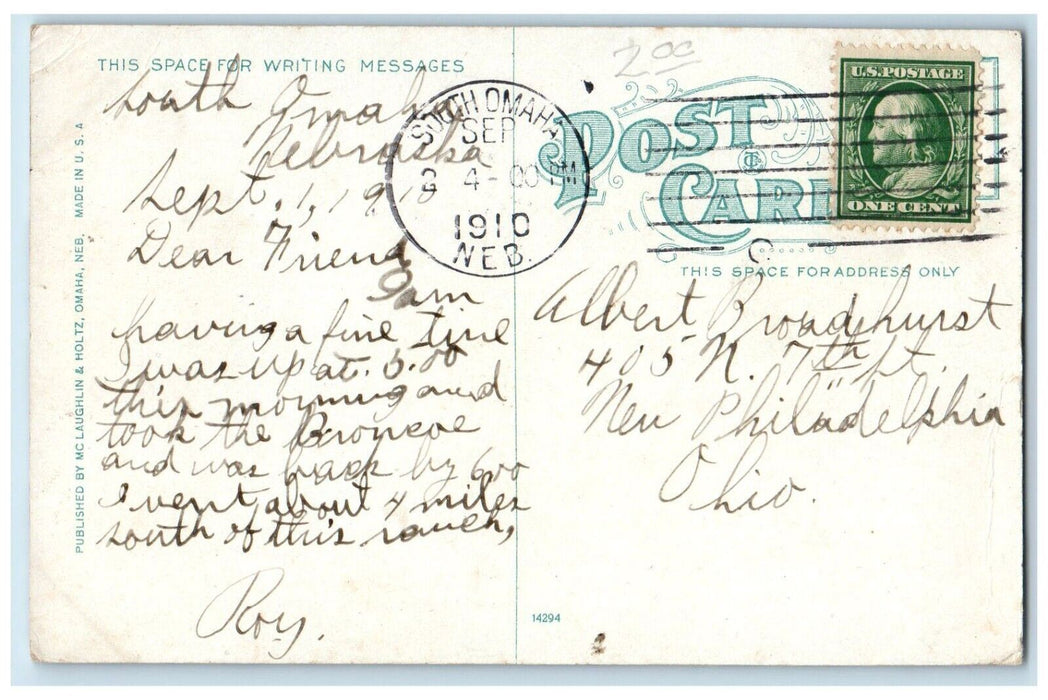 THIS SPACE FOR WRITING MESSAGES
South Omaha
Nebraska
Sept. 1, 1910
Dear Friend
I am
having a fine time
I was up at. 5.00
this morning and
took the Broncoe
and was back by 6.00
I went about 4 miles
south of this ranch,
Roy.
PUBLISHED BY MC LAUGHLIN & HOLTZ, OMAHA, NEB. MADE IN U.S.A
2 00
SOUTH OMAHA,
SEP
2 4-00 PM
1910
NEB.
POST
CARD
U.S. POSTAGE
ONE CENT
THIS SPACE FOR ADDRESS ONLY
Albert Broadhurst
405 N. 7th St.
New Philadelphia
Ohio.
14294